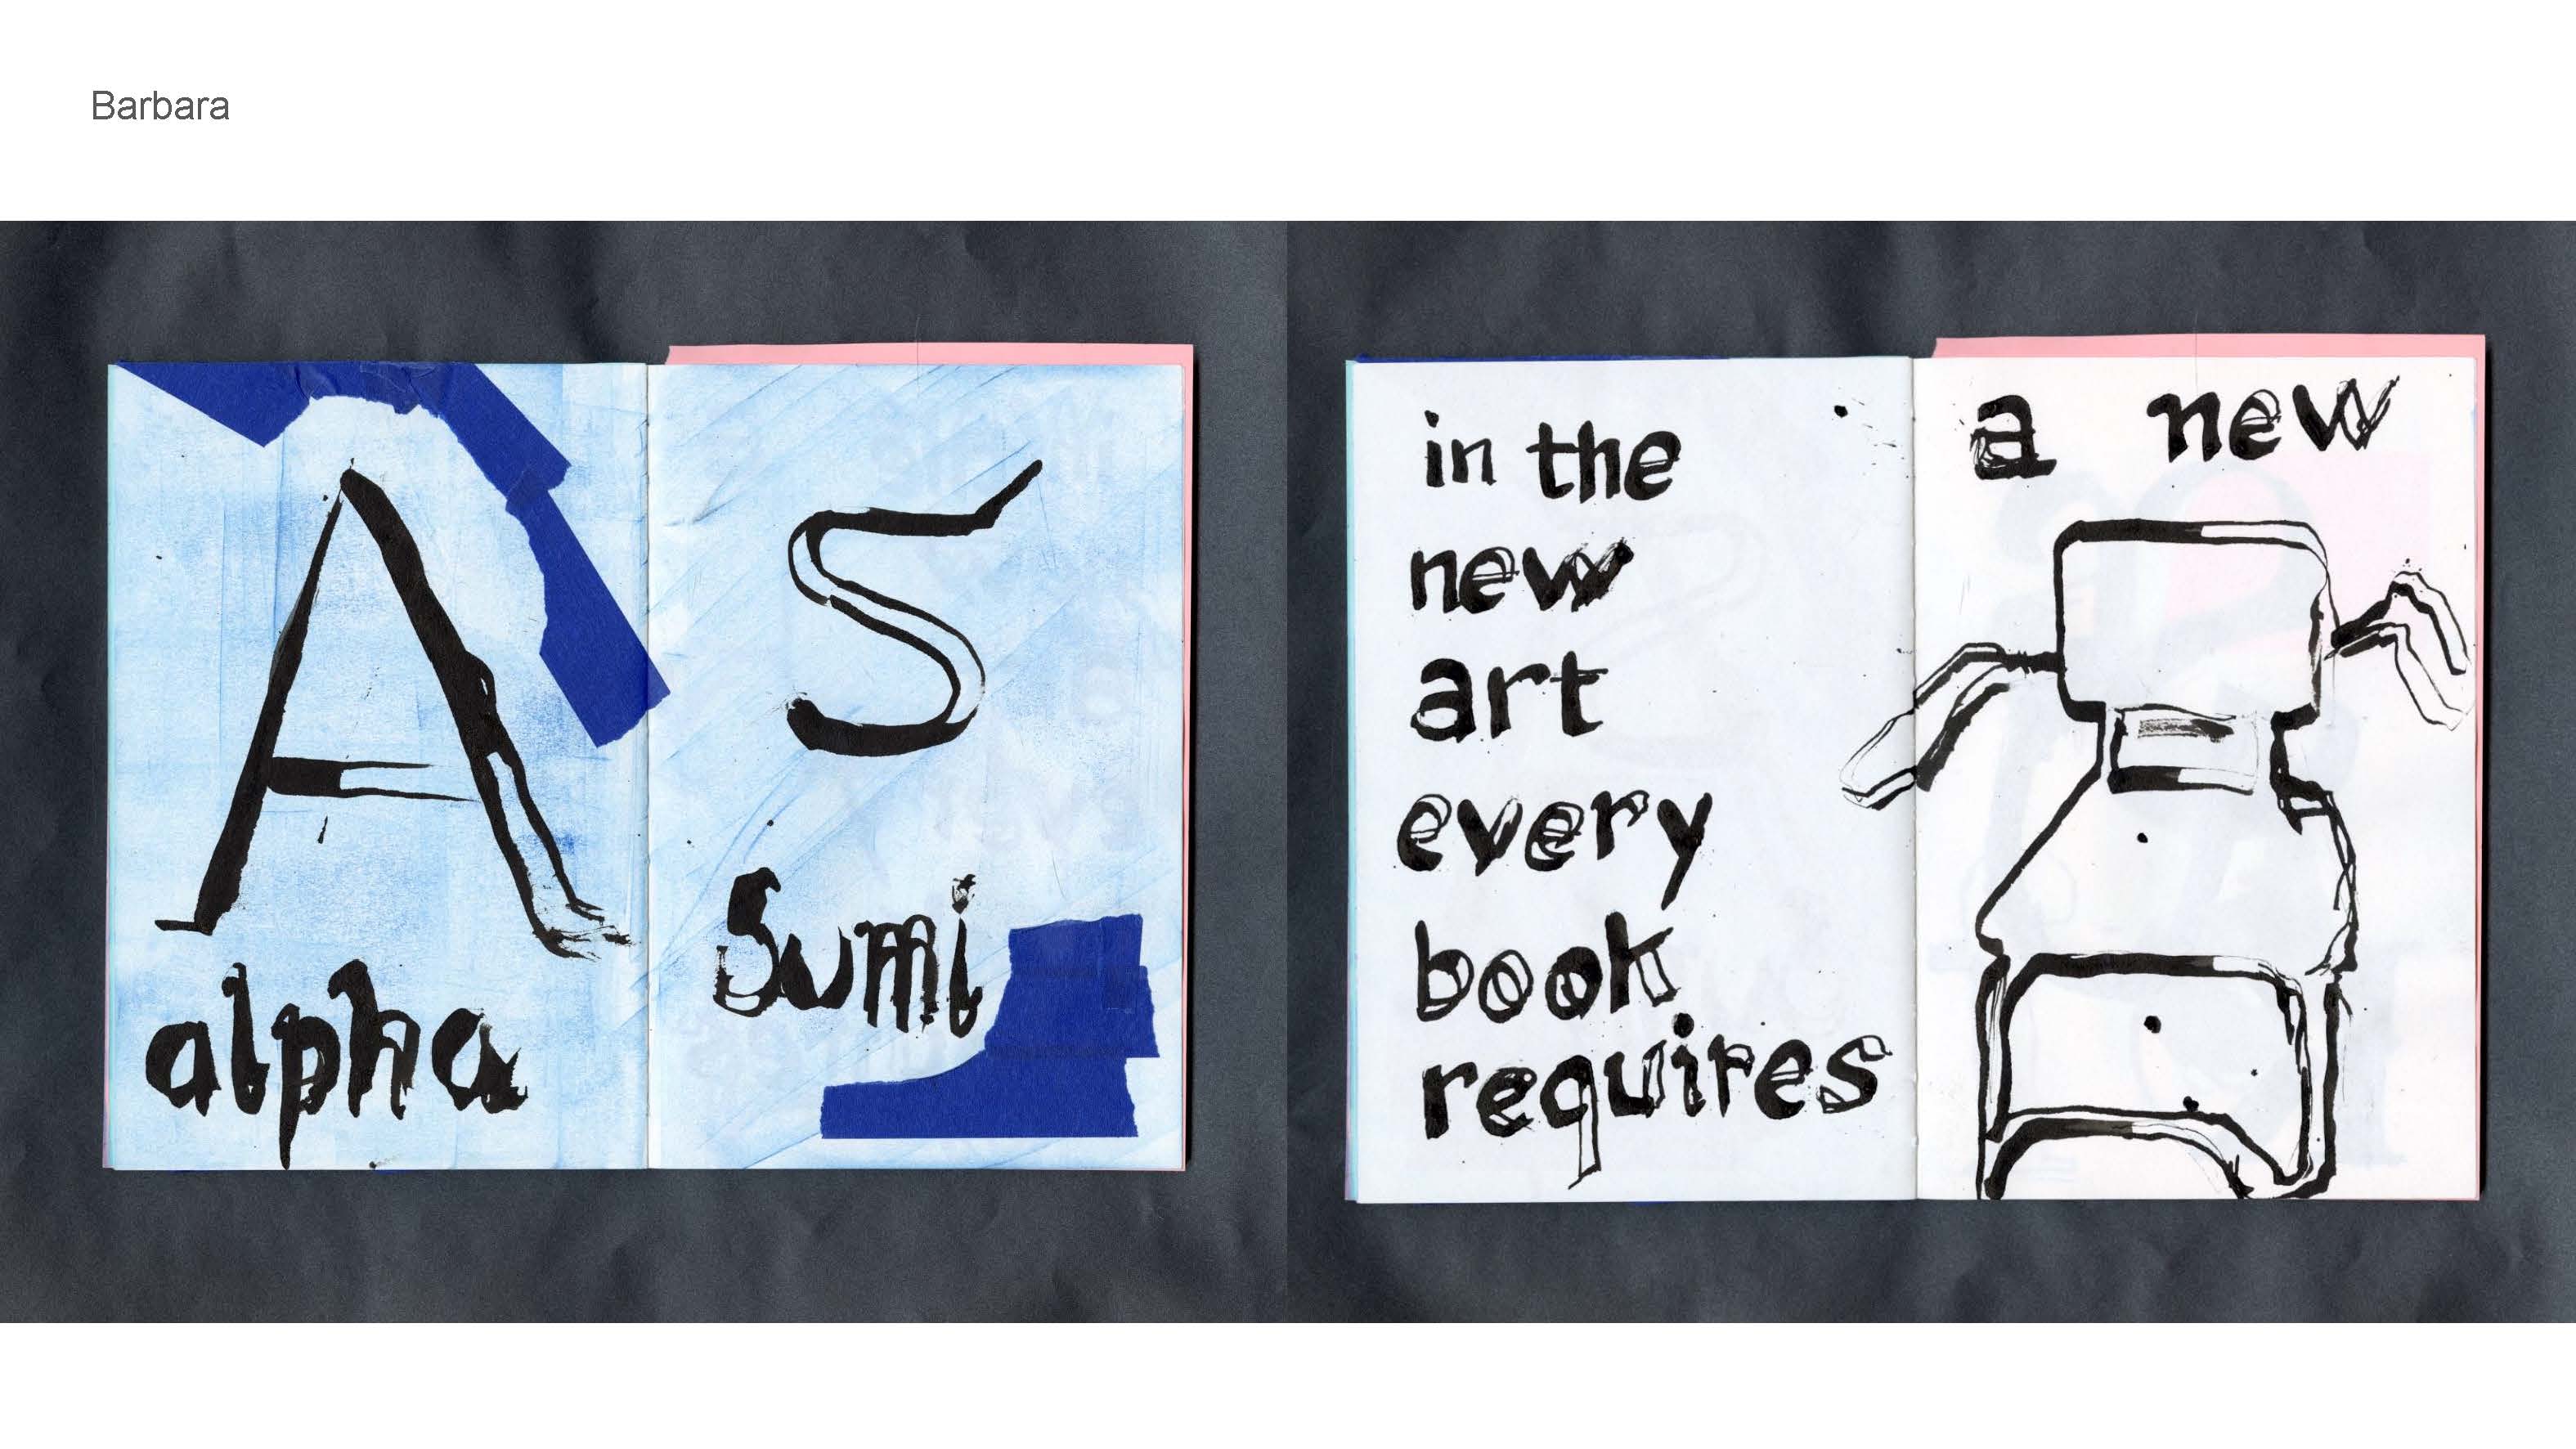 Barbara
A
alpha
S
Sumi
in the
new
art
every
book
requires
a new